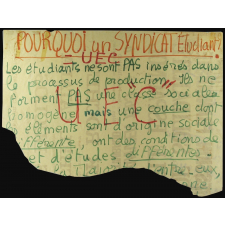 POURQUOI un SYNDICAT Etudiant?
UEC
Les étudiants ne sont PAS insérés dans
le processus de production. Ils ne
forment PAS une classe sociale
homogène mais une couche dont
"UEC"
éléments sont d'origine sociale
différente, ont des conditions de
et d'études différentes